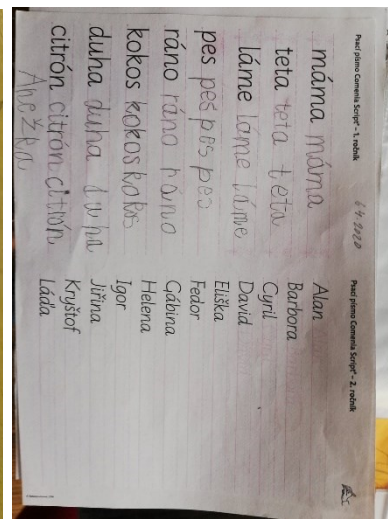 Psací písmo Comenia Script® – 1. ročník
6.4.2020
máma máma
teta teta teta
láme láme láme
pes pes pes pes
ráno ráno ráno
kokos kokos kokos
duha duha duha
citrón citrón citrón
Anežka
Psací písmo Comenia Script® – 2. ročník
Alan
Barbora
Cyril
David
Eliška
Fedor
Gábina
Helena
Igor
Jiřina
Kryštof
Láďa